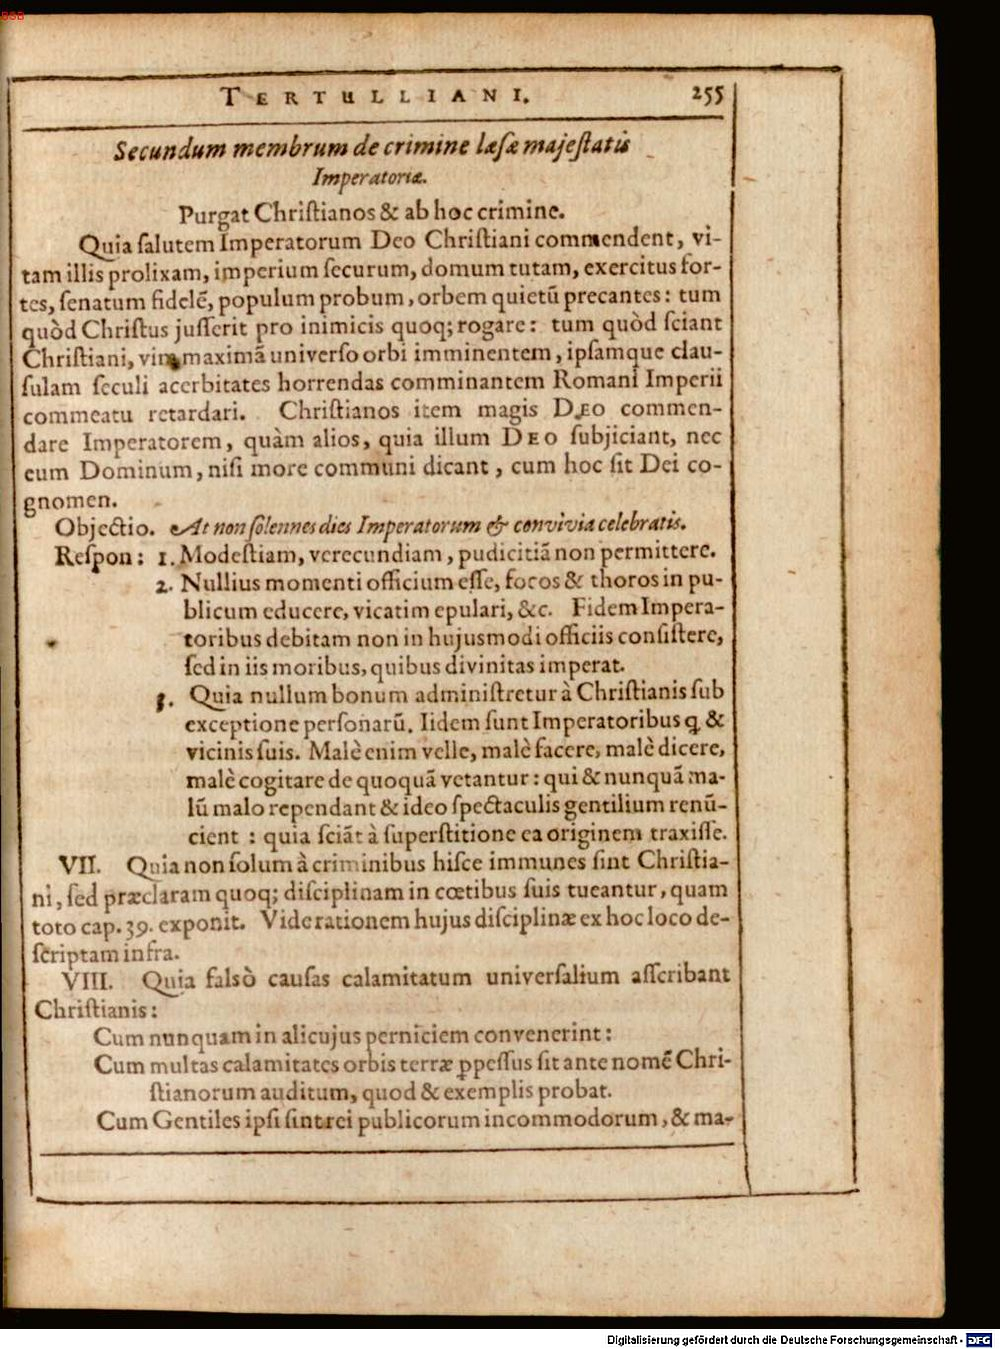 BSB
TERTULLIANI. 255
Secundum membrum de crimine læſæ majeſtatis
Imperatoriæ.
Purgat Chriſtianos & ab hoc crimine.
Quia ſalutem Imperatorum Deo Chriſtiani commendent, vi-
tam illis prolixam, imperium ſecurum, domum tutam, exercitus for-
tes, ſenatum fidelē, populum probum, orbem quietū precantes: tum
quòd Chriſtus juſſerit pro inimicis quoq; rogare: tum quòd ſciant
Chriſtiani, vim maximā univerſo orbi imminentem, ipſamque clau-
ſulam ſeculi acerbitates horrendas comminantem Romani Imperii
commeatu retardari. Chriſtianos item magis DEO commen-
dare Imperatorem, quàm alios, quia illum DEO ſubjiciant, nec
eum Dominum, niſi more communi dicant, cum hoc ſit Dei co-
gnomen.
Objectio. At non ſolennes dies Imperatorum & convivia celebratis.
Reſpon: 1. Modeſtiam, verecundiam, pudicitiā non permittere.
2. Nullius momenti officium eſſe, focos & thoros in pu-
blicum educere, vicatim epulari, &c. Fidem Impera-
toribus debitam non in hujusmodi officiis conſiſtere,
ſed in iis moribus, quibus divinitas imperat.
3. Quia nullum bonum adminiſtretur à Chriſtianis ſub
exceptione perſonarū. Iidem ſunt Imperatoribus q; &
vicinis ſuis. Malè enim velle, malè facere, malè dicere,
malè cogitare de quoquā vetantur: qui & nunquā ma-
lū malo rependant & ideo ſpectaculis gentilium renū-
cient: quia ſciāt à ſuperſtitione ea originem traxiſſe.
VII. Quia non ſolum à criminibus hiſce immunes ſint Chriſtia-
ni, ſed præclaram quoq; diſciplinam in cœtibus ſuis tueantur, quam
toto cap. 39. exponit. Vide rationem hujus diſciplinæ ex hoc loco de-
ſcriptam infra.
VIII. Quia falsò cauſas calamitatum univerſalium aſſcribant
Chriſtianis:
Cum nunquam in alicujus perniciem convenerint:
Cum multas calamitates orbis terræ ꝑpeſſus ſit ante nomē Chri-
ſtianorum auditum, quod & exemplis probat.
Cum Gentiles ipſi ſint rei publicorum incommodorum, & ma-
Digitalisierung gefördert durch die Deutsche Forschungsgemeinschaft - DFG